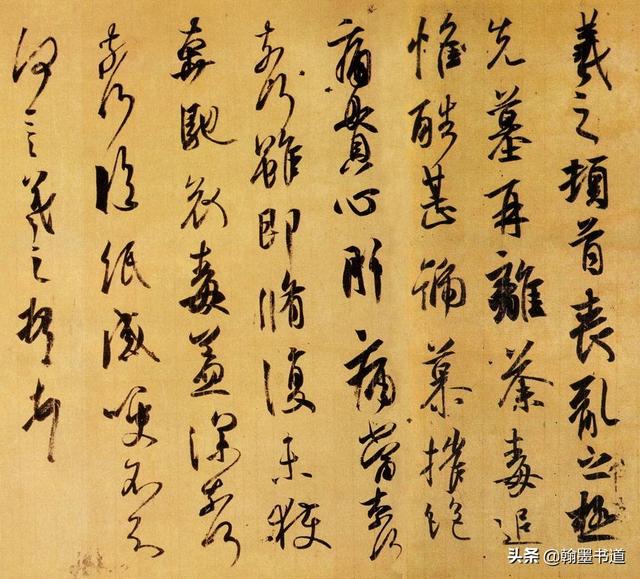 羲之頓首喪亂之極
先墓再離荼毒追
惟酷甚號慕摧絕
痛貫心肝痛當奈何
奈何雖即脩復未獲
奔馳哀毒益深奈何
奈何臨紙感哽不知
何言羲之頓首頓首
头条 @翰墨书道